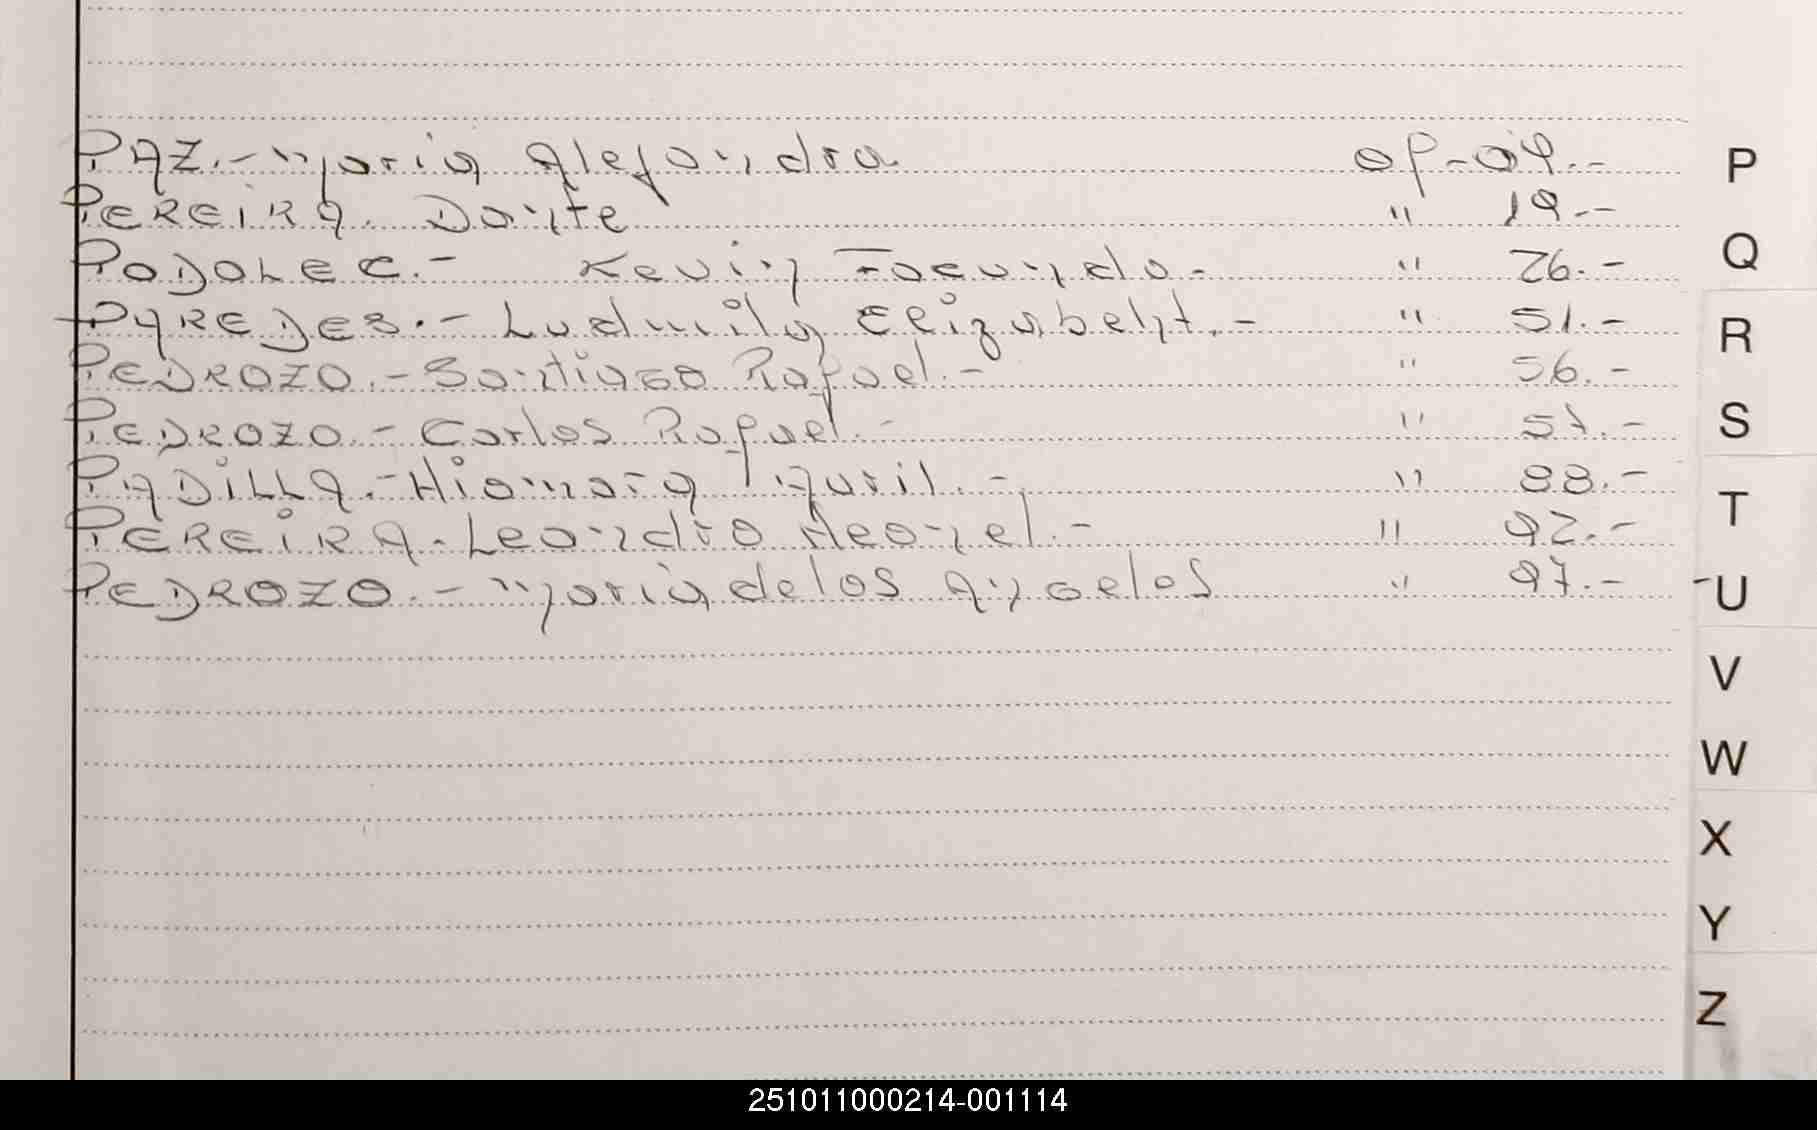 PAZ.- Maria Alejandra of-04.- P
PEREIRA. Dante " 19.-
PODOLEC.- Kevin Facundo.- " 26.- Q
PAREDES.- Ludmila Elizabeht.- " 51.- R
PEDROZO.- Santiago Rafael.- " 56.-
PEDROZO.- Carlos Rafael.- " 57.- S
PADILLA.- Xiomara .- " 88.-
PEREIRA. Leandro Neonel.- " 92.- T
PEDROZO.- Maria de los Angeles " 97.- U
V
W
X
Y
Z
251011000214-001114